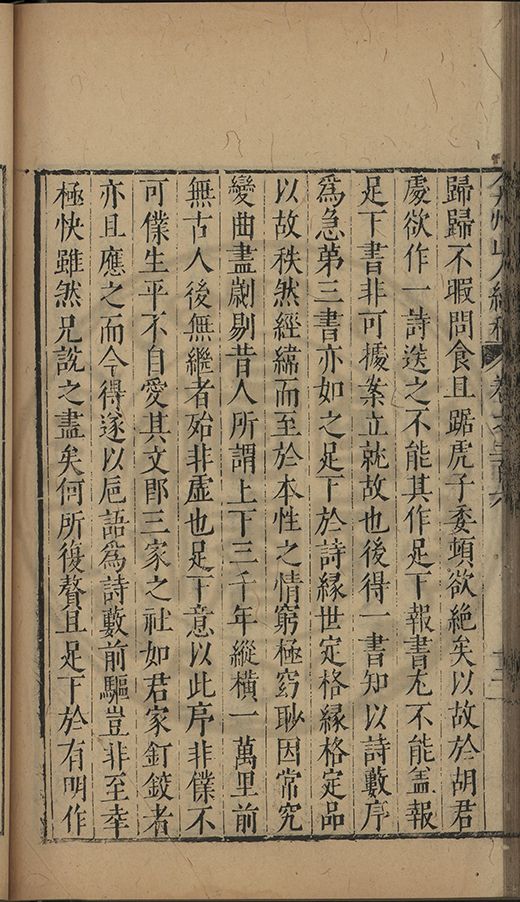 弇州山人續稿 卷之二百六
歸歸不暇問食且踞虎子委頓欲絕矣以故於胡君
處欲作一詩送之不能其作足下報書尤不能盡報
足下書非可據案立就故也後得一書知以詩藪序
爲急第三書亦如之足下於詩緣世定格緣格定品
以故秩然經緯而至於本性之情窮極窈眇因常究
變曲盡劌剔昔人所謂上下三千年縱橫一萬里前
無古人後無繼者殆非虛也足下意以此序非僕不
可僕生平不自愛其文卽三家之社如君家釘鉸者
亦且應之而今得遂以巵語爲詩藪前驅豈非至幸
極快雖然兄說之盡矣何所復贅且足下於有明作